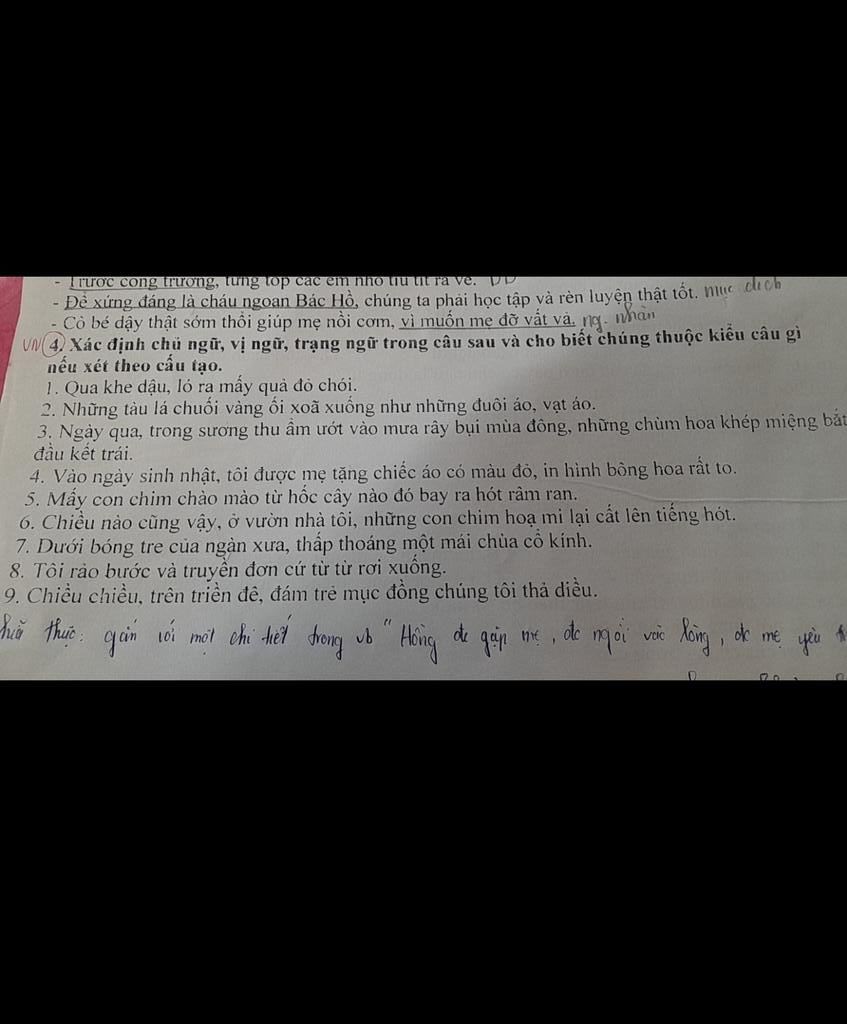 - Trước cổng trường, từng tốp các em nhỏ tíu tít ra về. DD
- Để xứng đáng là cháu ngoan Bác Hồ, chúng ta phải học tập và rèn luyện thật tốt. mục đích
- Cô bé dậy thật sớm thổi giúp mẹ nồi cơm, vì muốn mẹ đỡ vất vả. ng. nhân
VN 4. Xác định chủ ngữ, vị ngữ, trạng ngữ trong câu sau và cho biết chúng thuộc kiểu câu gì
nếu xét theo cấu tạo.
1. Qua khe dậu, ló ra mấy quả đỏ chói.
2. Những tàu lá chuối vàng ối xoã xuống như những đuôi áo, vạt áo.
3. Ngày qua, trong sương thu ẩm ướt vào mưa rây bụi mùa đông, những chùm hoa khép miệng bắt
đầu kết trái.
4. Vào ngày sinh nhật, tôi được mẹ tặng chiếc áo có màu đỏ, in hình bông hoa rất to.
5. Mấy con chim chào mào từ hốc cây nào đó bay ra hót râm ran.
6. Chiều nào cũng vậy, ở vườn nhà tôi, những con chim hoạ mi lại cất lên tiếng hót.
7. Dưới bóng tre của ngàn xưa, thấp thoáng một mái chùa cổ kính.
8. Tôi rảo bước và truyền đơn cứ từ từ rơi xuống.
9. Chiều chiều, trên triền đê, đám trẻ mục đồng chúng tôi thả diều.
thực: gắn với một chi tiết trong vb "Hồng đc gặp mẹ, đc ngồi vào lòng, đc mẹ yêu